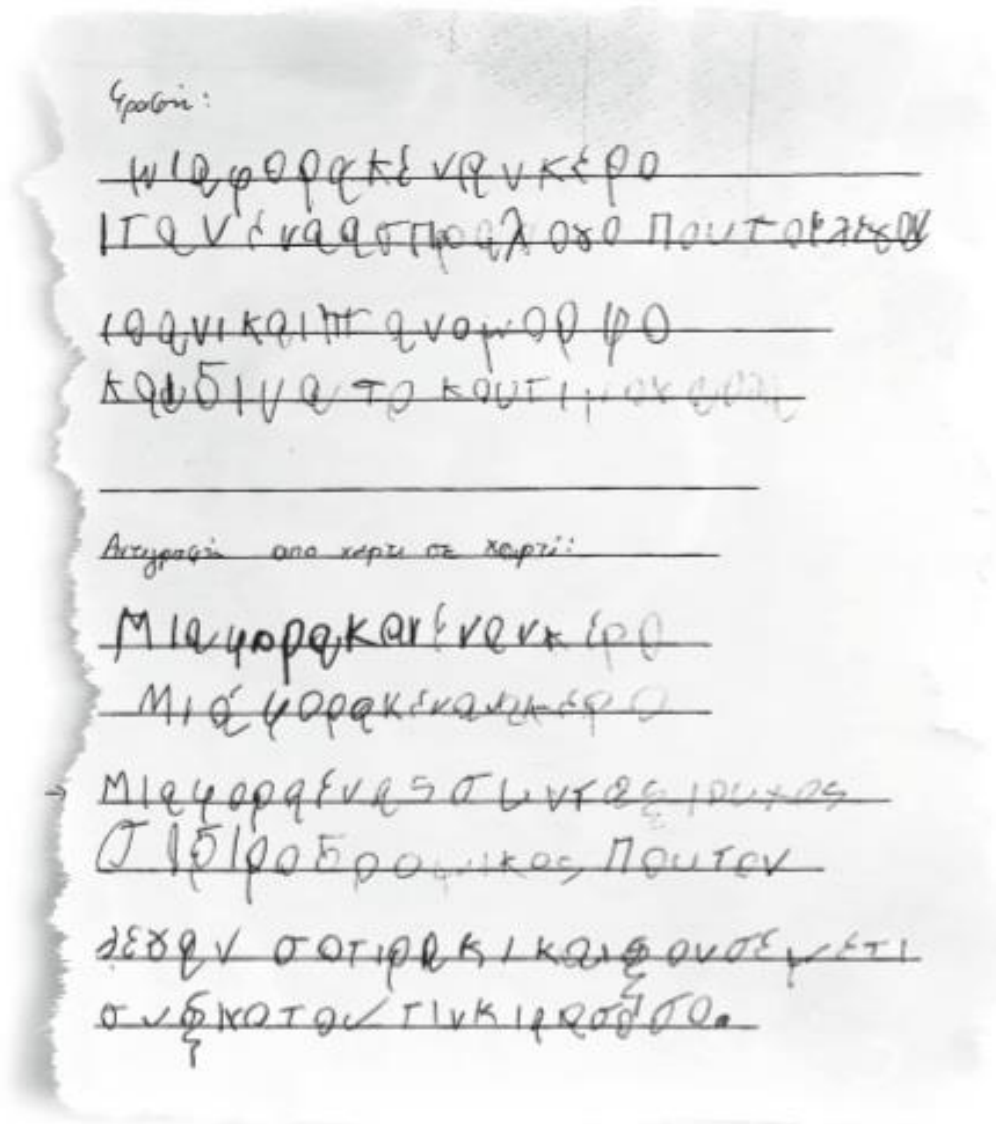 Γραφή:
μιαφορακέναν κέρο
ιταν ένα ασπροαλογο πουτολεγαν
ιοανικαιπανομορφο
καιδινατο κουτι
Αντιγραφή από χαρτί σε χαρτί:
Μιαφορακαιένανκέρο
Μιάφορακένανκέρο
Μιαφοραένας συνταξιουχος
σιδιροδρομικος πουτον
λέγαν σοτιρακι καιζουσέ μέτι
συζιγοτου τινκιρασόσο.